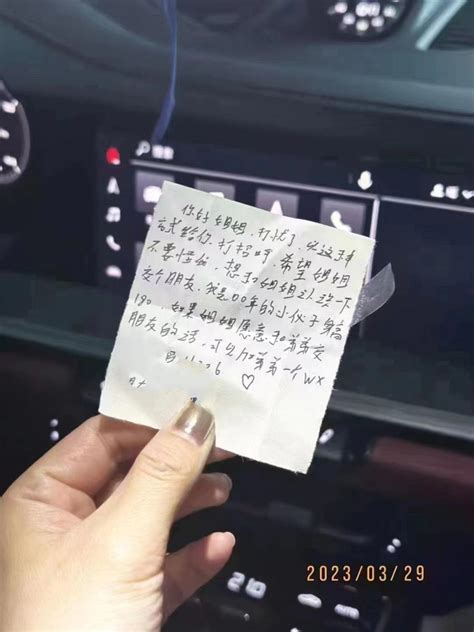 2023/03/29
你好姐姐，打扰了，以这种
方式给你打招呼希望姐姐
不要怪我，想和姐姐认识一下
交个朋友，我是00年的小伙子身高
180，如果姐姐愿意和弟弟交
朋友的话，可以加弟弟一个wx
♡
21.0
AUTO
2023/03/29